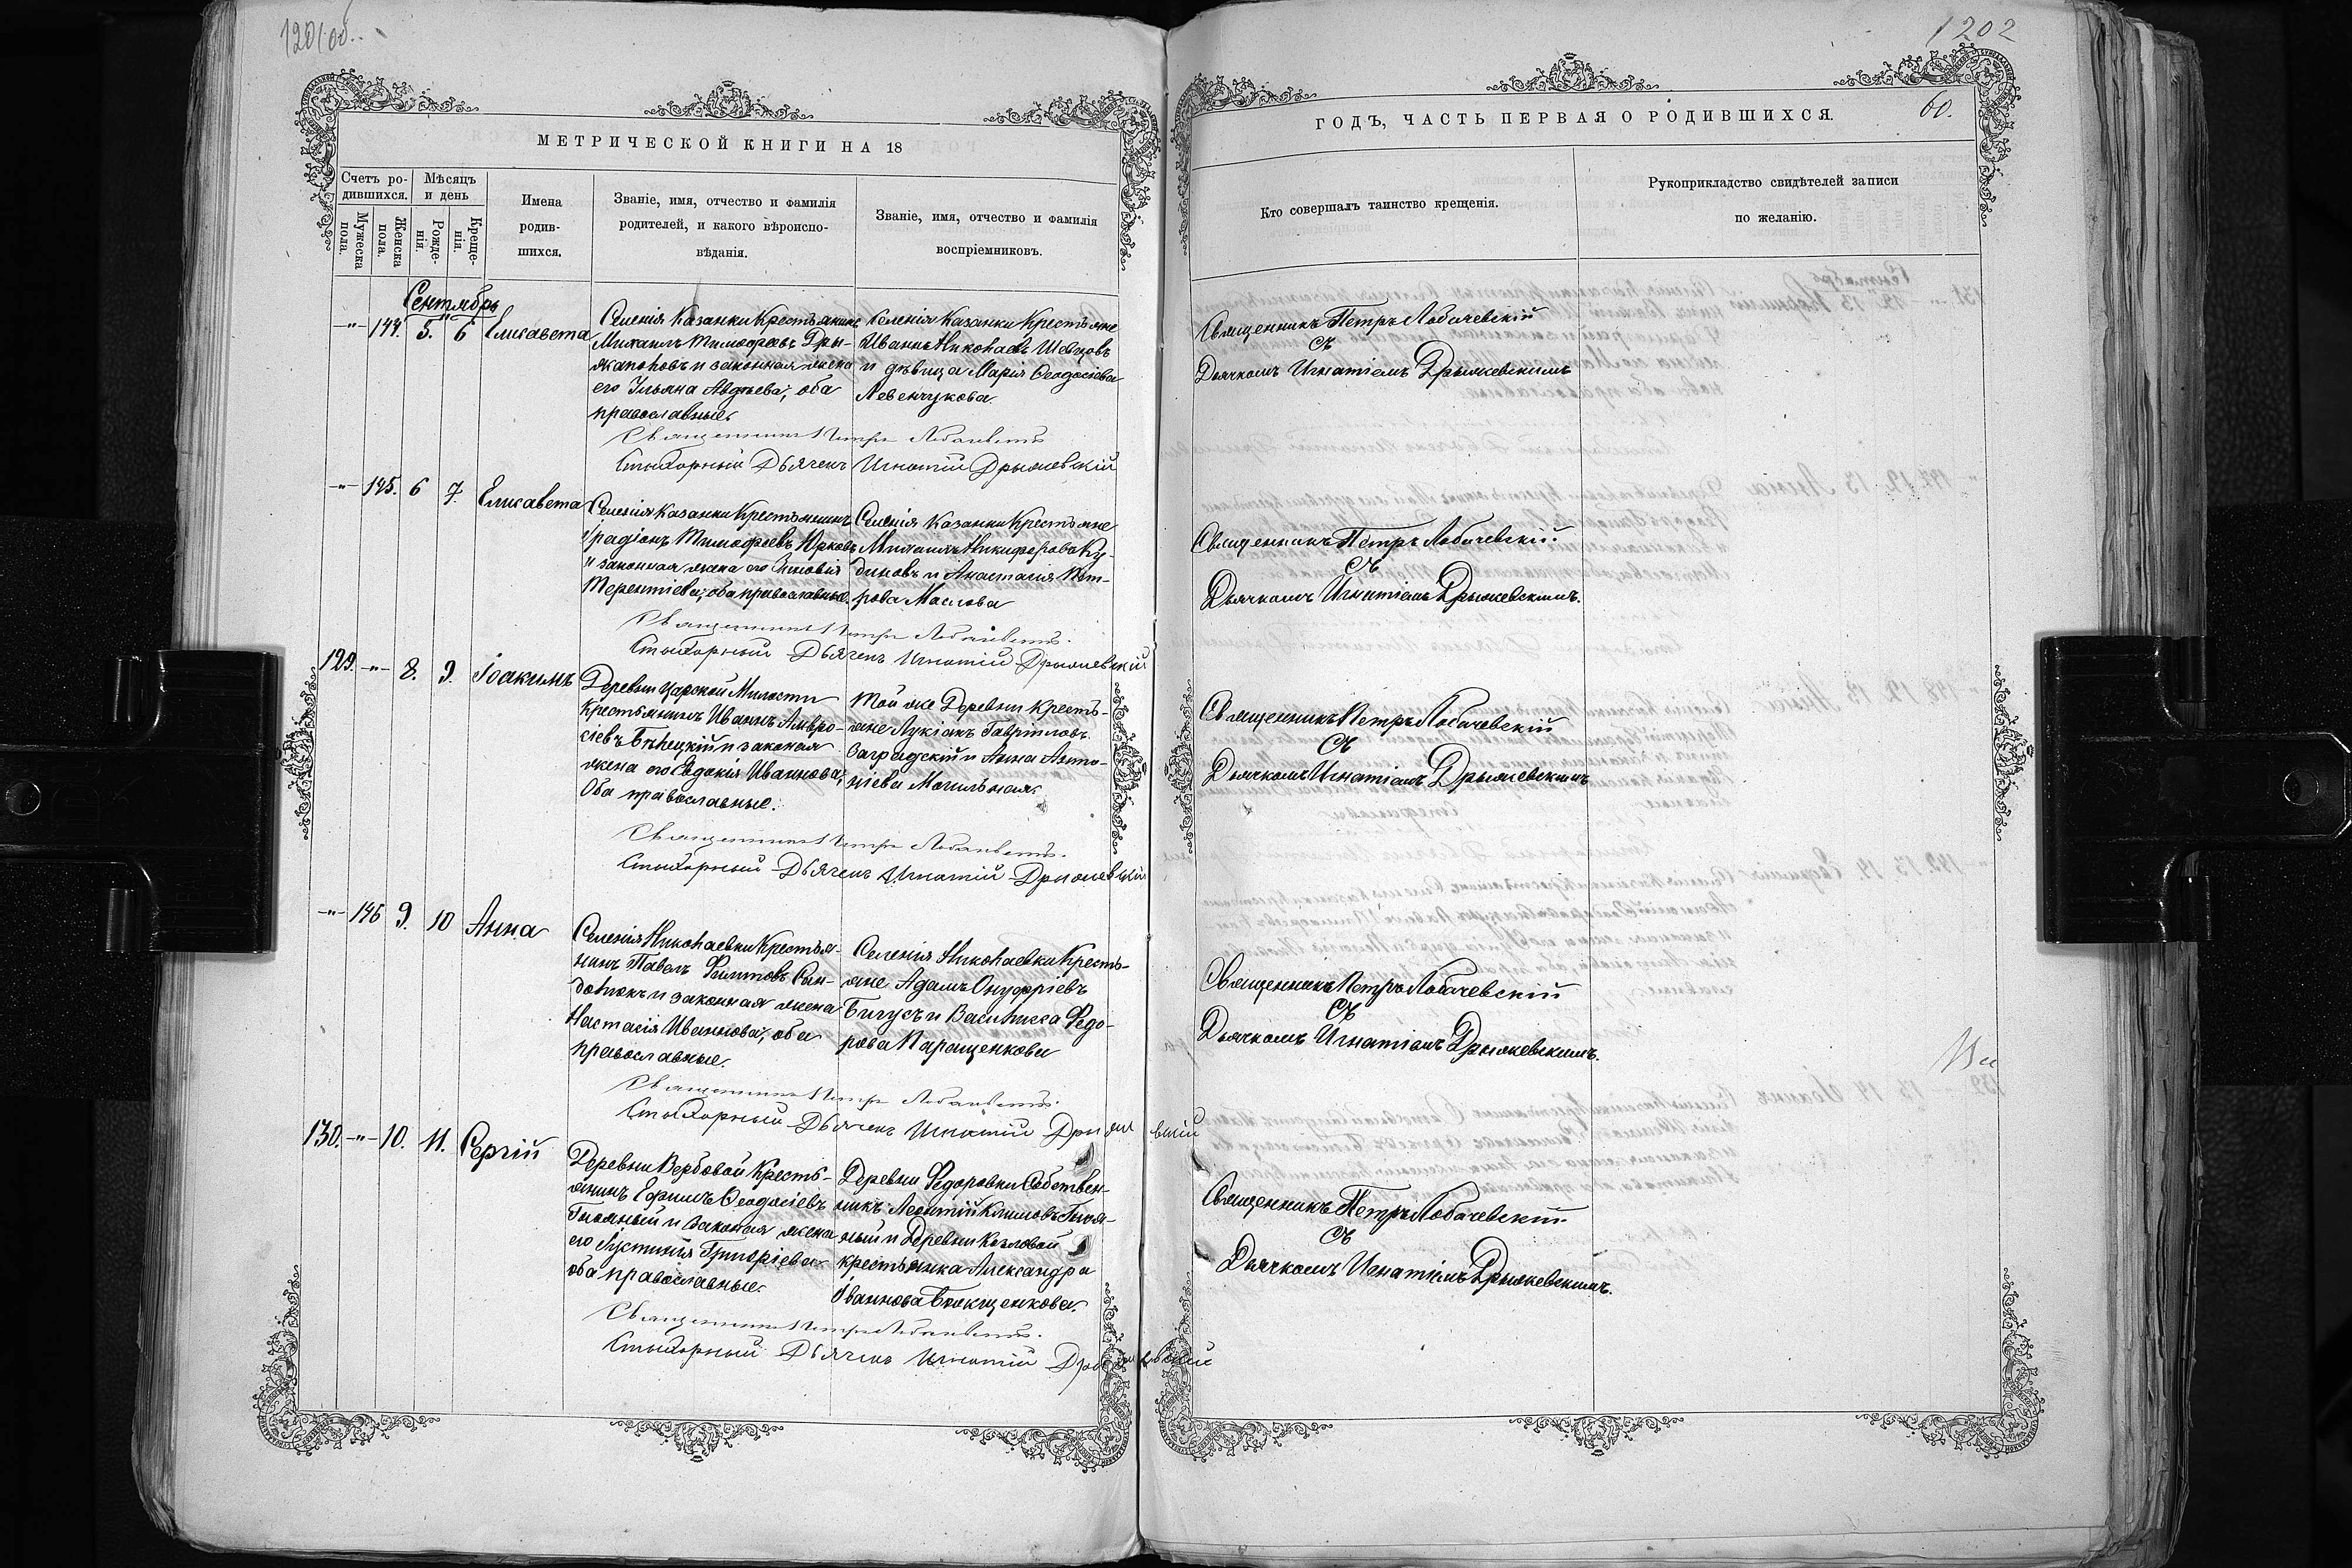 1201об.
МЕТРИЧЕСКОЙ КНИГИ НА 18
Счетъ ро-
дившихся.
Мужеска
пола.
Женска
пола.
Мѣсяцъ
и день
Рожде-
нія.
Креще-
нія.
Имена
родив-
шихся.
Званіе, имя, отчество и фамилія
родителей, и какого вѣроиспо-
вѣданія.
Званіе, имя, отчество и фамилія
воспріемниковъ.
Сентябрь
-"- 144. 5. 6 Елисавета
Селенія Казанки Крестьянинъ
Михаилъ Тимофеевъ Дры-
жапоновъ и законная жена
его Ульяна Авдѣева, оба
православные.
Селенія Казанки Крестьяне
Иванъ Николаевъ Шевцовъ
и дѣвица Марія Ѳеодосіева
Левенчукова.
Священникъ Петръ Лобачевскій
Стихарный Дьячекъ Игнатій Дрыжевскій
-"- 145. 6 7. Елисавета
Селенія Казанки Крестьянинъ
Ірадіонъ Тимофеевъ Юрковъ
и законная жена его
Терентіева, оба православные.
Селенія Казанки Крестьяне
Михаилъ Никифоровъ Ку-
диновъ и Анастасія Пет-
рова Маслова
Священникъ Петръ Лобачевскій.
Стихарный Дьячекъ Игнатій Дрыжевскій
129. -"- 8. 9. Іоакимъ
Деревни Царской Милости
крестьянинъ Иванъ Амвро-
сіевъ Бѣлецкій и законая
жена его Евдокія Иванова;
Оба православные.
Той же Деревни Кресть-
яне Лукіанъ Гавріиловъ
Заградскій и Анна Анто-
ніева Могильная.
Священникъ Петръ Лобачевскій.
Стихарный Дьячекъ Игнатій Дрыжевскій
-"- 146 9. 10 Анна
Селенія Николаевки Крестья-
нинъ Павелъ Филиповъ Сан-
долюкъ и законная жена
Настасія Иванова, оба
православные.
Селенія Николаевки Кресть-
яне Адамъ Онуфріевъ
Бигусъ и Василисса Ѳедо-
рова Паращенкова
Священникъ Петръ Лобачевскій.
Стихарный Дьячекъ Игнатій Дрыжевскій
130. -"- 10. 11. Сергій
Деревни Вербовой Кресть-
янинъ Ефимъ Ѳеодосіевъ
Гнояный и законая жена
его Іустинія Григоріева
оба православные.
Деревни Ѳедоровки Собствен-
никъ Леонтій Климовъ Гноя-
ный и Деревни Козловой
крестьянка Александра
Іванова
Священникъ Петръ Лобачевскій.
Стихарный Дьячекъ Игнатій Дрыжевскій
1202
60.
ГОДЪ, ЧАСТЬ ПЕРВАЯ О РОДИВШИХСЯ.
Кто совершалъ таинство крещенія.
Рукоприкладство свидѣтелей записи
по желанію.
Священникъ Петръ Лобачевскій
съ
Дьячкомъ Игнатіемъ Дрыжевскимъ
Священникъ Петръ Лобачевскій.
съ
Дьячкомъ Игнатіемъ Дрыжевскимъ.
Священникъ Петръ Лобачевскій
съ
Дьячкомъ Игнатіемъ Дрыжевскимъ
Священникъ Петръ Лобачевскій
съ
Дьячкомъ Игнатіемъ Дрыжевскимъ.
Священникъ Петръ Лобачевскій.
съ
Дьячкомъ Игнатіемъ Дрыжевскимъ.